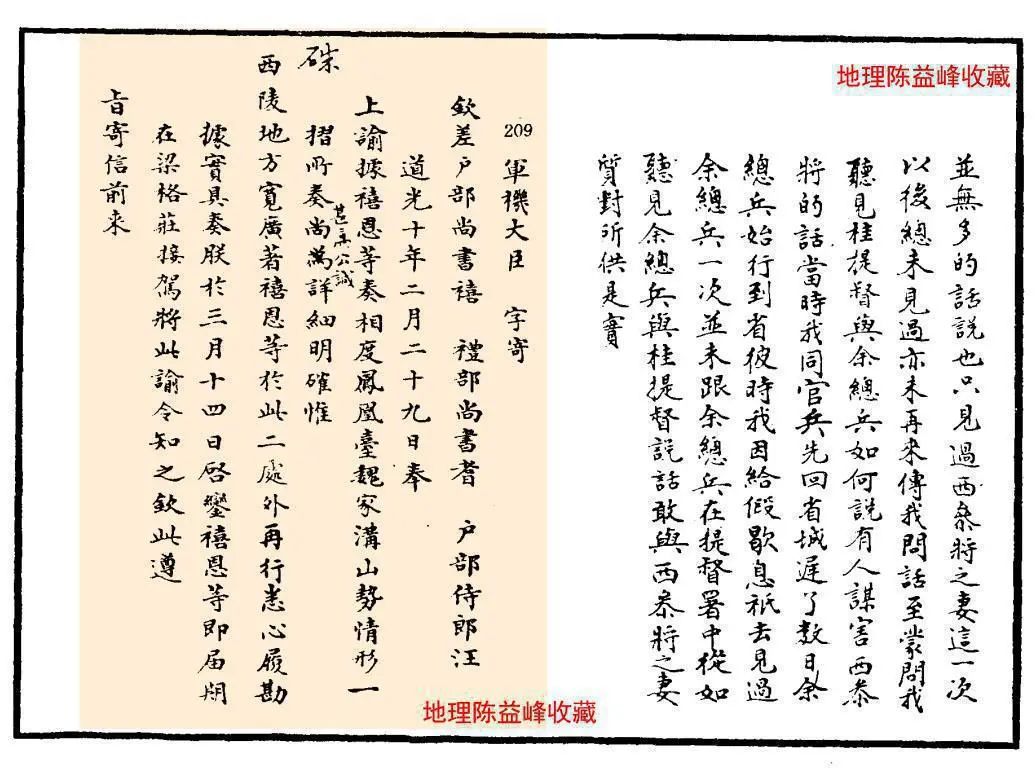 地理陈益峰收藏
並無多的話說也只見過西叅將之妻這一次
以後總未見過亦未再來傳我問話至蒙問我
聽見桂提督與余總兵如何說有人謀害西叅
將的話當時我同官兵先回省城遲了数日余
總兵始行到省彼時我因給假歇息祇去見過
余總兵一次並未跟余總兵在提督署中從如
聽見余總兵與桂提督説話敢與西叅將之妻
質對所供是實
209 軍機大臣 字寄
欽差户部尚書禧 禮部尚書耆 户部侍郎汪
道光十年二月二十九日奉
上諭據禧恩等奏相度鳳凰臺魏家溝山勢情形一
摺所奏尚為詳細明確惟
甚為公誠
硃
西陵地方寬廣著禧恩等於此二處外再行悉心履勘
據實具奏朕於三月十四日啓鑾禧恩等即届期
在梁格莊接駕將此諭令知之欽此遵
旨寄信前来
地理陈益峰收藏